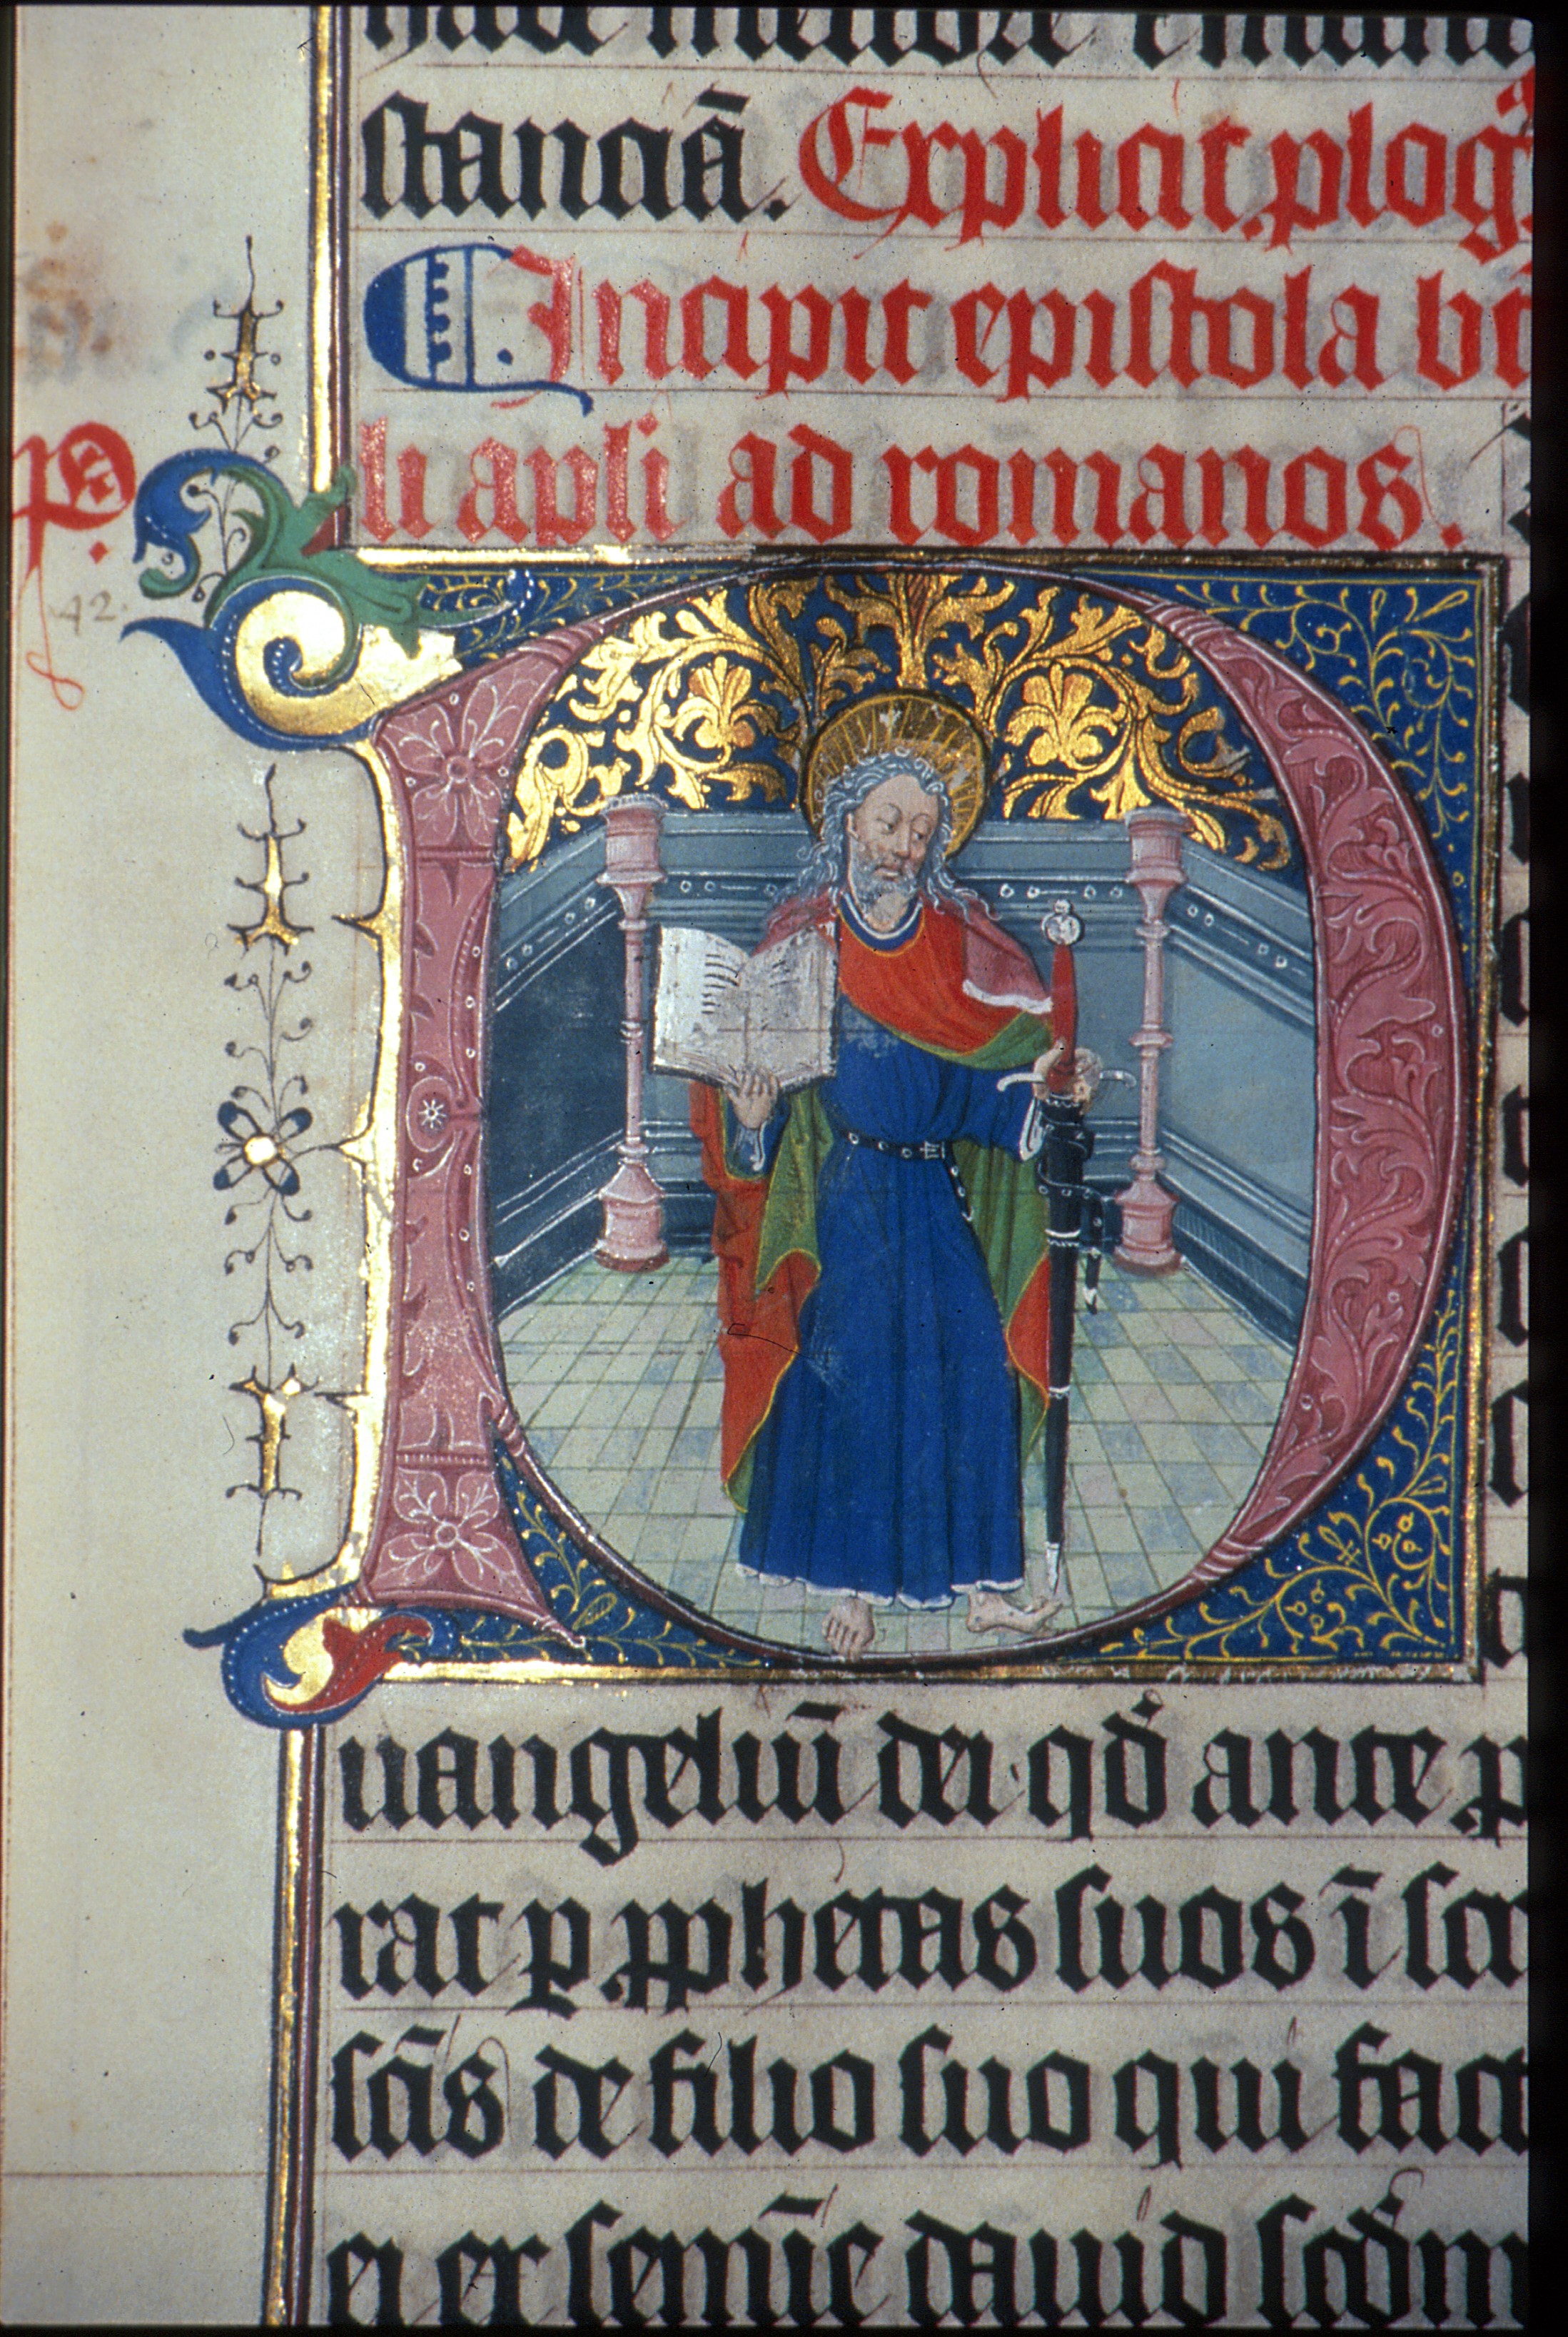 stanciā. Explicit plog
Incipit epistola bt̄i
Pau
li apli ad romanos.
42.
P
uangeliū dei qđ ante p
rat p pphetas suos ī scri
scīs de filio suo qui fact
ei ex semīe dauid scđm